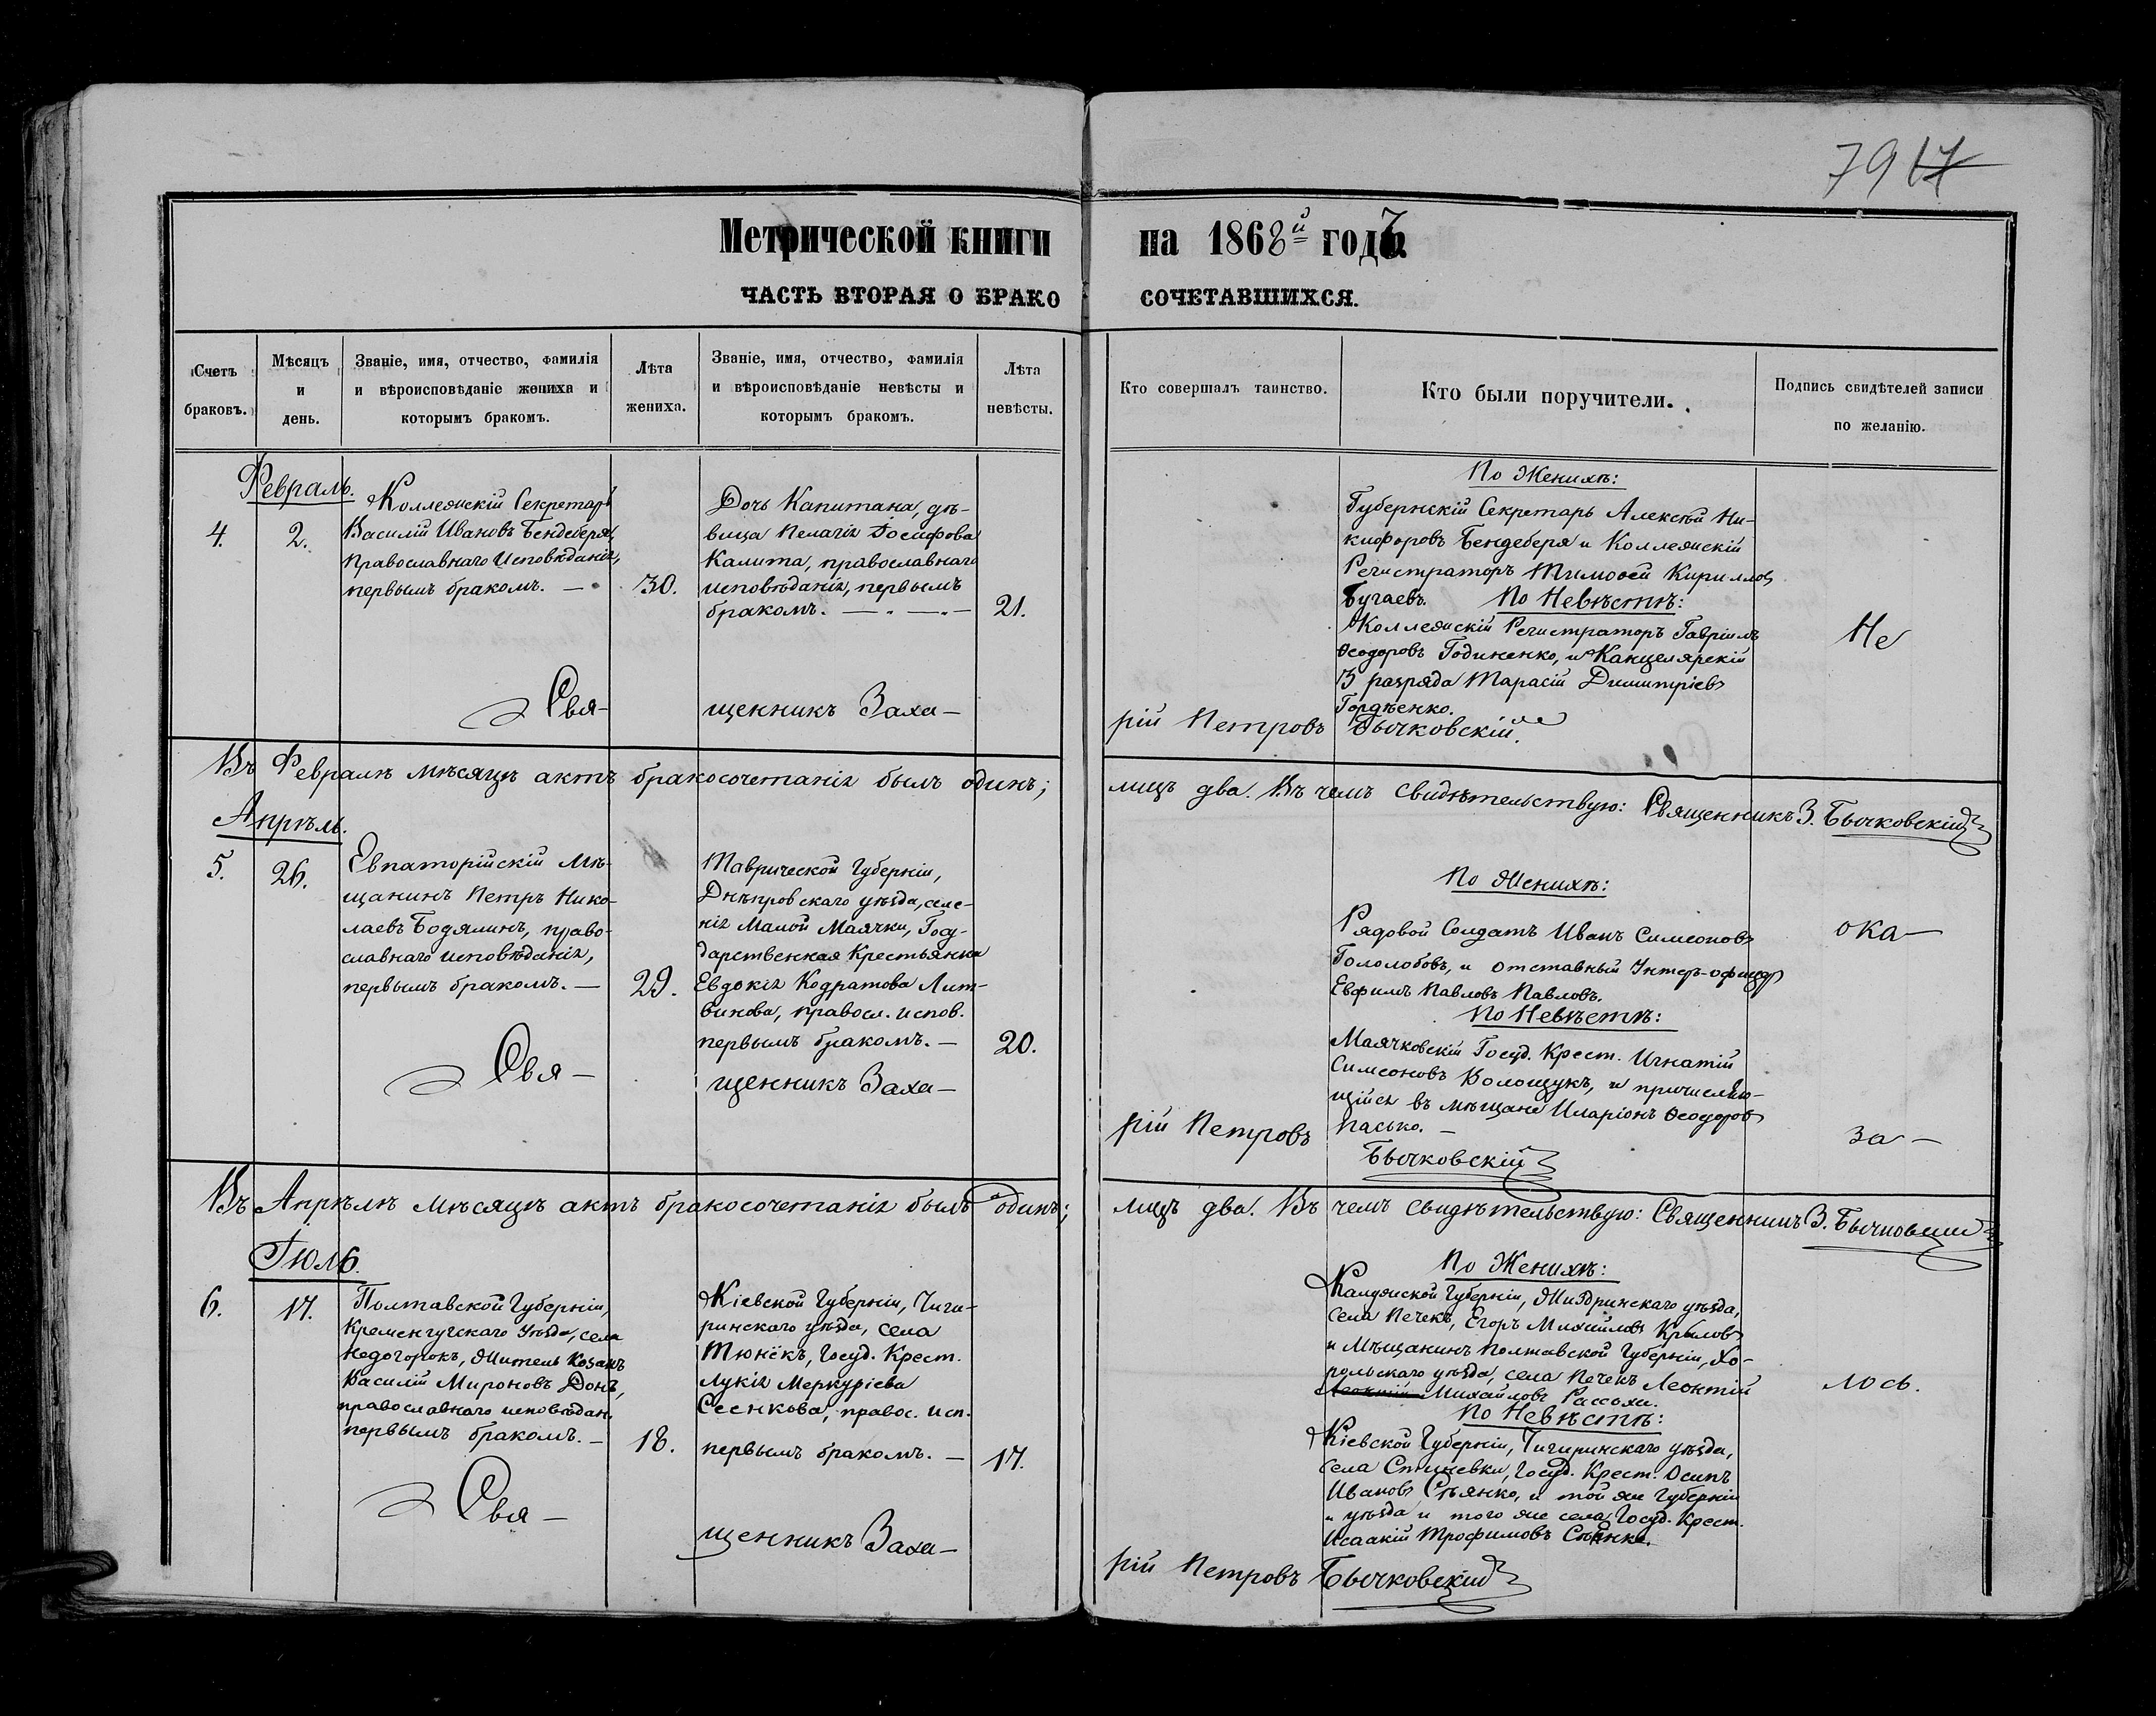 79 17
Метрической книги на 1868й годъ.
ЧАСТЬ ВТОРАЯ О БРАКО СОЧЕТАВШИХСЯ.
Счетъ браковъ.
Мѣсяцъ и день.
Званіе, имя, отчество, фамилія
и вѣроисповѣданіе жениха и
которымъ бракомъ.
Лѣта жениха.
Званіе, имя, отчество, фамилія
и вѣроисповѣданіе невѣсты и
которымъ бракомъ.
Лѣта невѣсты.
Кто совершалъ таинство.
Кто были поручители.
Подпись свидѣтелей записи
по желанію.
Февраль.
4.
2.
Коллежскій Секретарь
Василій Ивановъ Бендеберя,
Православнаго Исповѣданія,
первымъ бракомъ. —
30.
Дочь Капитана, дѣ-
вица Пелагія Іосифова
Калита, православнаго
исповѣданія, первымъ
бракомъ. — . — . —
21.
По Женихѣ:
Губернскій Секретарь Алексѣй Ни-
кифоровъ Бендеберя и Коллежскій
Регистраторъ Тимоѳей Кириллов
Бугаевъ. По Невѣстѣ:
Коллежскій Регистраторъ Гавріилъ
Ѳеодоровъ Годиненко, и Канцелярскій
3 разряда Тарасій Димитріев
Гордѣенко.
Не
Свя- щенникъ Заха- рій Петровъ Бычковскій.
Въ Февралѣ мѣсяцѣ актъ бракосочетанія былъ одинъ; лицъ два. Въ чемъ свидѣтельствую: Священникъ З. Бычковскій
Апрѣль.
5.
26.
Евпаторійскій Мѣ-
щанинъ Петръ Нико-
лаевъ Бодялинъ, право-
славнаго исповѣданія,
первымъ бракомъ. —
29.
Таврической Губерніи,
Днѣпровскаго уѣзда, селе-
нія Малой Маячки, Госу-
дарственная Крестьянка
Евдокія Кодратова Лит-
винова, правосл. испов.
первымъ бракомъ. —
20.
По Женихѣ:
Рядовой Солдатъ Иванъ Симеонов
Гололобовъ, и отставный Унтеръ-офицер
Евфимъ Павловъ Павловъ.
По Невѣстѣ:
Маячковскій Госуд. Крест. Игнатій
Симеоновъ Волощукъ, и причисляю-
щійся въ мѣщане Иларіонъ Ѳеодоров
Пасько. —
ока-
Свя- щенникъ Заха- рій Петровъ
Бычковскій
за-
Въ Апрѣлѣ мѣсяцѣ актъ бракосочетанія былъ одинъ; лицъ два. Въ чемъ свидѣтельствую: Священникъ З. Бычковскій
Іюль.
6.
17.
Полтавской Губерніи,
Кременчугскаго Уѣзда, села
Недогорокъ, житель Козакъ
Василій Мироновъ Донъ,
православнаго исповѣдан.
первымъ бракомъ. —
18.
Кіевской Губерніи, Чиги-
ринскаго уѣзда, села
Тюнёкъ, Госуд. Крест.
Лукія Меркуріева
Сеенкова, правос. исп.
первымъ бракомъ. —
17.
По Женихѣ:
Калужской Губерніи, Жиздринскаго уѣзда,
села Печекъ, Егоръ Михайловъ Крылов
и Мѣщанинъ Полтавской Губерніи, Хо-
рольскаго уѣзда, села Печекъ Леонтій
Михайловъ Рассоха.
По Невѣстѣ:
Кіевской Губерніи, Чигиринскаго уѣзда,
села Госуд. Крест. Осипъ
Иванов и той же Губерніи
и уѣзда и того же села, Госуд. Крест.
Исаакій Трофимовъ
лось.
Свя- щенникъ Заха- рій Петровъ Бычковскій